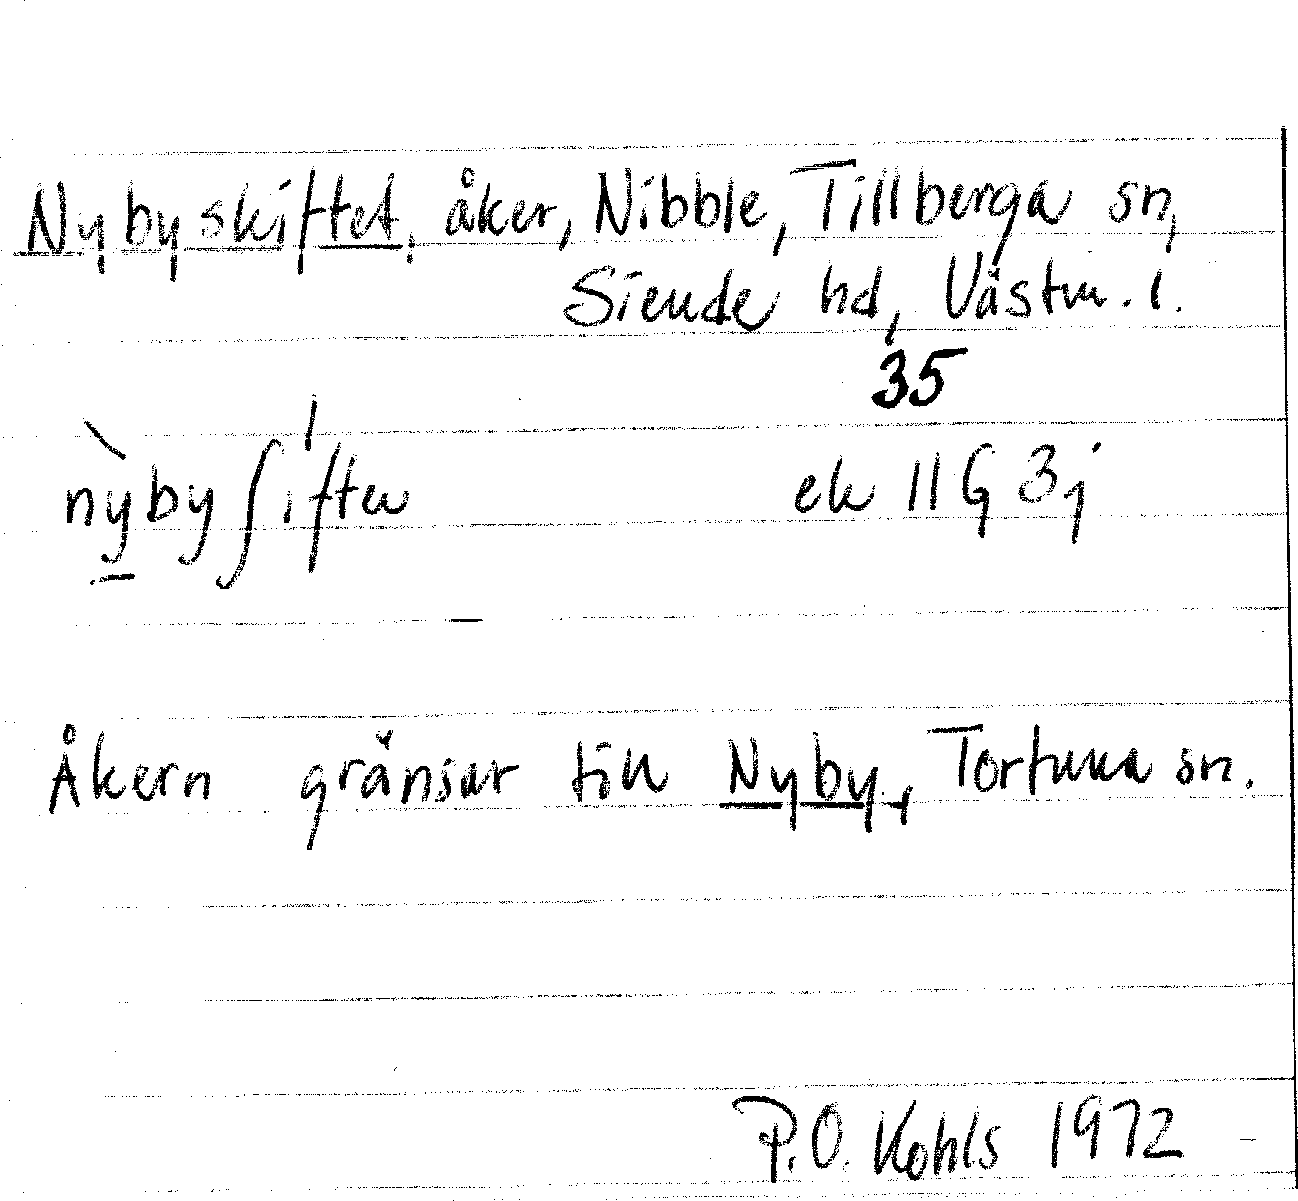 Nybyskiftet, åker, Nibble, Tillberga sn,
Siende hd, Västm. l.
35
nybyʃiften ek 11G 3j
Åkern gränsar till Nyby, Tortuna sn.
P.O. Kohls 1972